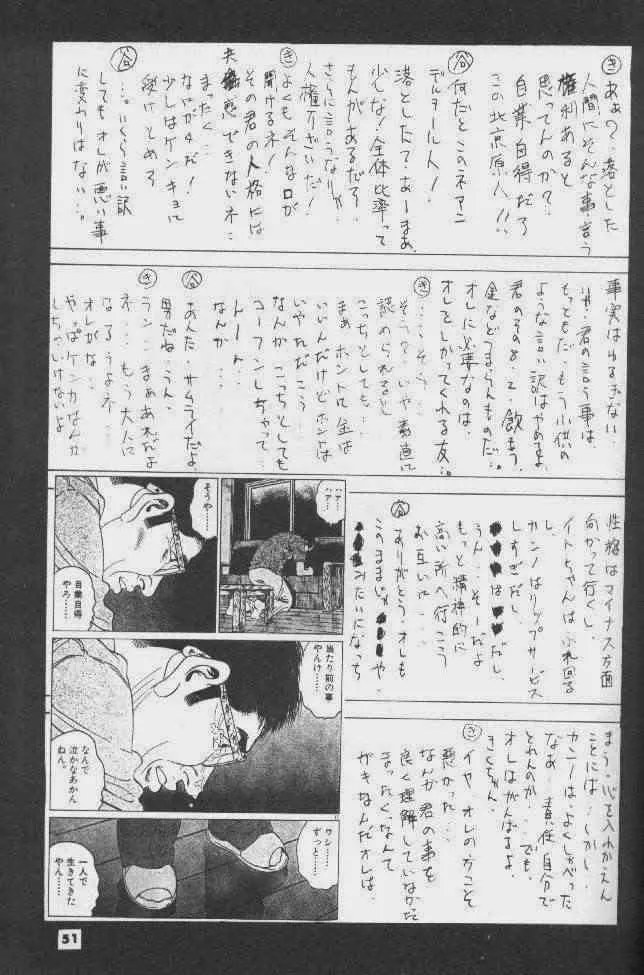 き
あぁの?‥落とした
人間にそんな事言う
権利あると
思ってんのか?‥
自業自得だろ
この北京原人!!
谷
何だとこのネアン
デルタール人!
落としたって‥あーまぁ、
少しな!全体比率って
もんがあるだろ‥
さらに言うなりゃ‥
人権リがいだ!
き
よくもそんな口が
聞けるネ!
その君の人格には
夫惑できないネ‥
まったく‥
なやが4だ!
少しはケンキョに
受けとめろ
谷
‥。いくら言い訳
してもオレが悪い事
に変わりはない‥。
事実はゆるぎない
‥君の言う事は、
もっともだ‥もう小供の
ような言い訳はやめるよ、
君のその8、2、飲もう、
金などつまらんものだ‥。
オレに必要なのは、
オレをしかってくれる友‥。
き
‥‥そう‥‥
そう?‥いや素直に
認められると
こっちとしても‥
まぁホントは金は
いいんだけどホントは
いやただこう
なんかこっちとしても
コーフンしちゃって‥
トート‥
なんか‥
谷
あんた‥サムライだよ、
男だね‥うん、
き
ラン‥まぁあれだよ
ネ‥、もう大人に
なろうよネ‥
オレがな‥
やっぱケンカなんか
しちゃいけないよ
性格はマイナス方面
向かって行くし、
イトちゃんはふれ回る
し、
カンノはリップサービス
しすぎだし、
はだし、
うん‥そーだよ
もっと精神的に
高い所へ行こう
お互い‥‥
谷
ありがとう‥オレも
このままじゃや‥
みたいになっち
まう‥心を入れかえん
ことには‥しかし、
カンノは、よくしゃべった
なぁ‥責任自分で
とれんのか‥でも、
オレはがんばるよ、
きくちゃん、
き
イヤ、オレの方こそ
悪かった‥‥
なんか君の事を
良く理解していなかった
まったく、なんて
ガキなんだオレは、
ハァ…
ハァ…
そうや……
自業自得
やろ……
当たり前の事
やんけ……
なんで
泣かなあかん
ねん。
ワシ……
ずっと……
一人で
生きてきた
やん……
51